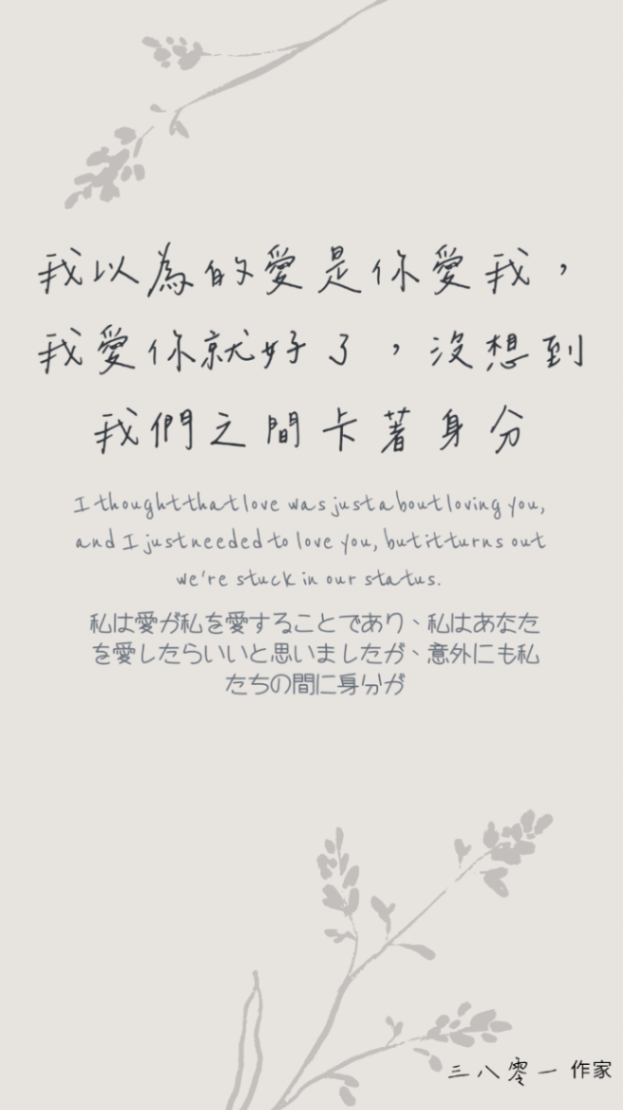 我以為的愛是你愛我，
我愛你就好了，沒想到
我們之間卡著身分
I thought that love was just about loving you,
and I just needed to love you, but it turns out
we're stuck in our status.
私は愛が私を愛することであり、私はあなた
を愛したらいいと思いましたが、意外にも私
たちの間に身分が
三八零一 作家